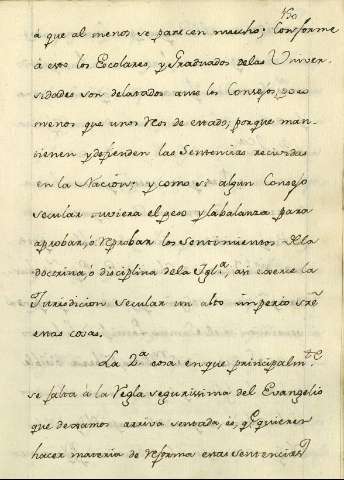 130
a que al menos se parecen mucho; Conforme
á esto los Escolares, y Graduados de las Univer-
sidades son delatados ante los Consejos, poco
menos que unos Reos de estado; porque man-
tienen y defienden las Sentencias recividas
en la Nacion; y como si algun Consejo
secular tuviera el peso y la balanza para
aprobar, ó Reprobar los Sentimientos de la
doctrina, ó disciplina de la Igl.ª, asi exerce la
Jurisdicion secular un alto imperio sre
estas cosas.
La 2.ª cosa en que principalm.te
se falta á la Regla segurissima del Evangelio
que dexamos arriva sentada, es, q.e quieren
hacer materia de Reforma estas Sentencias